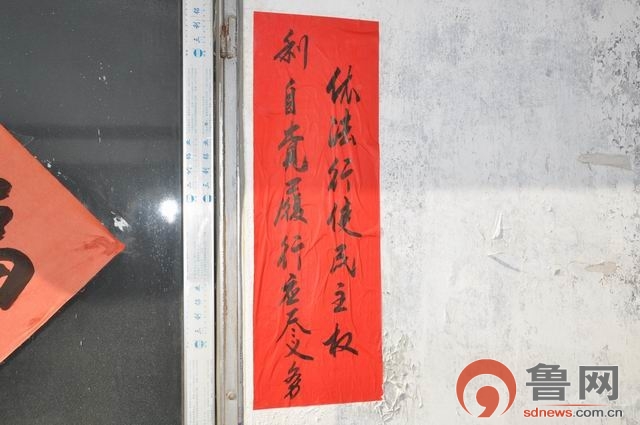 依法行使民主权
利自觉履行应尽义务
鲁网
sdnews.com.cn